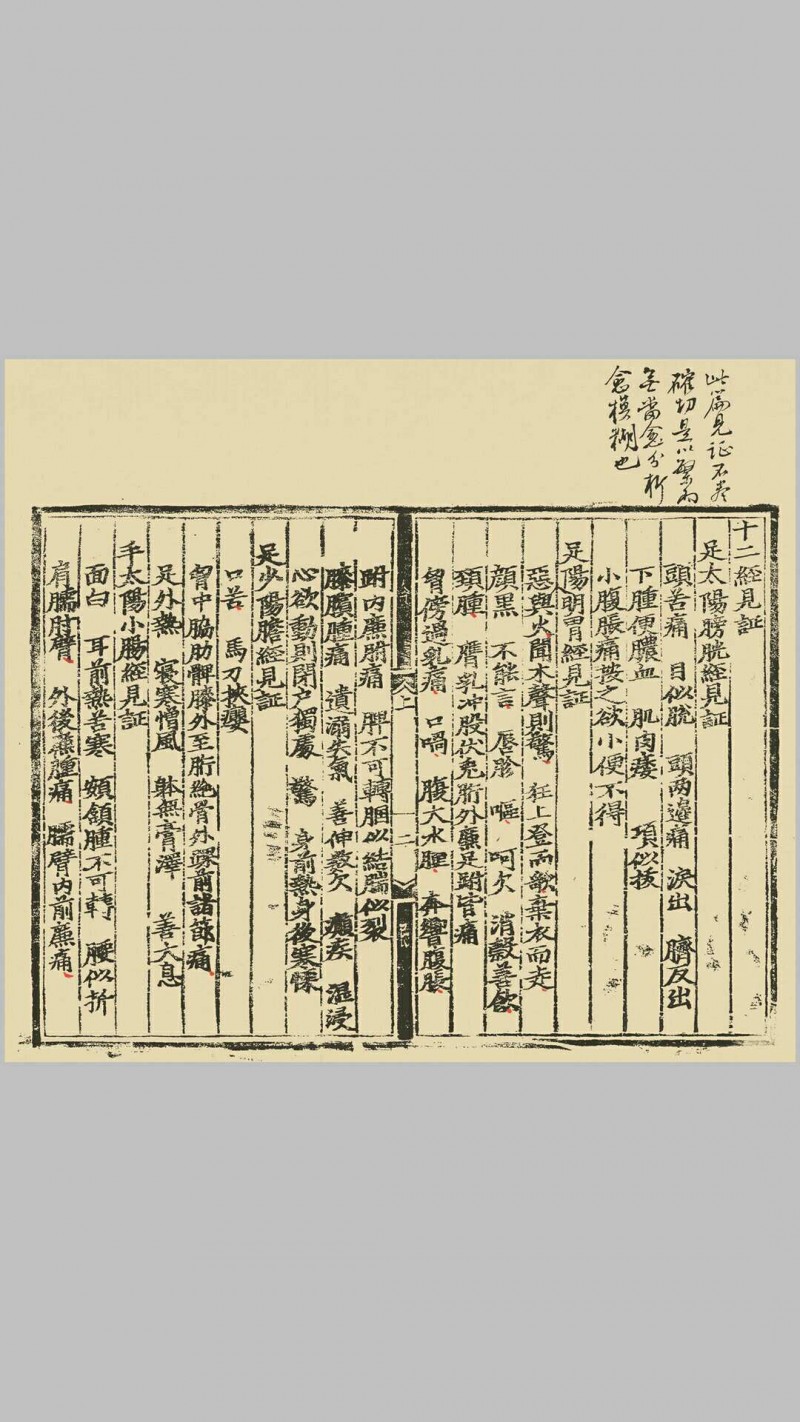 此篇見証不盡
確切是以繁而
無當愈分析
愈模糊也
十二經見証
足太陽膀胱經見証
頭苦痛 目似脫 頭两邉痛 淚出 臍反出
下腫便膿血 肌肉痿 項似拔
小腹脹痛按之欲小便不得
足陽明胃經見証
惡與火聞木聲則驚 狂上登而歌棄衣而走
顔黑 不能言 唇胗 嘔 呵欠 消穀善飲
頸腫 膺乳冲股伏兎胻外廉足跗皆痛
胷傍過乳痛 口喎 腹大水腫 奔響腹脹
跗内廉胻痛 髀不可轉膕似結腨似裂
膝臏腫痛 遺溺失氣 善伸數欠 癲疾 濕浸
心欲動則閉户獨處 驚 身前熱身後寒慄
上 二
足少陽膽經見証
口苦 馬刀挾癭
胷中脇肋髀膝外至胻絶骨外踝前諸節痛
足外熱 寢寒憎風 躰無膏澤 善太息
手太陽小腸經見証
面白 耳前熱苦寒 頰頷腫不可轉 腰似折
肩臑肘臂 外後廉腫痛 臑臂内前廉痛